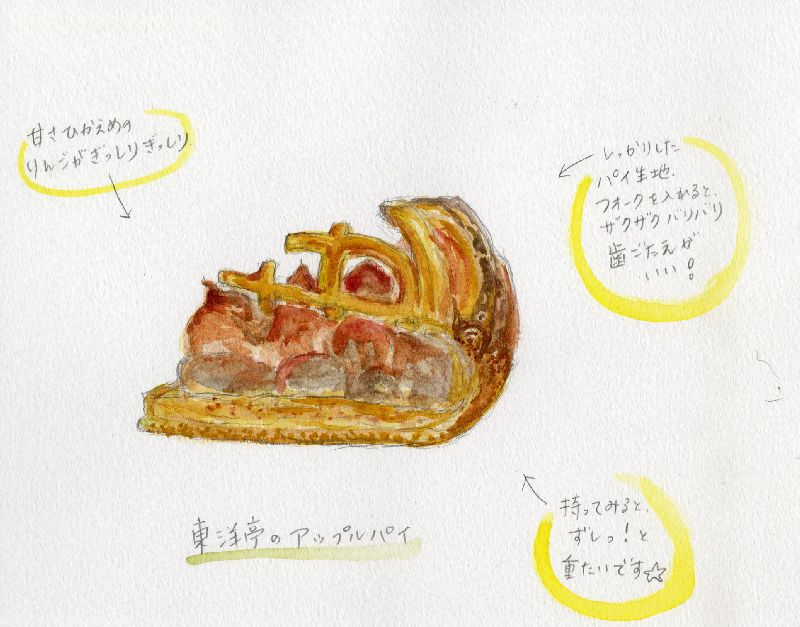 甘さひかえめの
りんごがぎっしりぎっしり
しっかりした
パイ生地.
フォークを入れると、
ザクザクバリバリ
歯ごたえが
いい!
持ってみると、
ずしっ!と
重たいです☆
東洋亭のアップルパイ